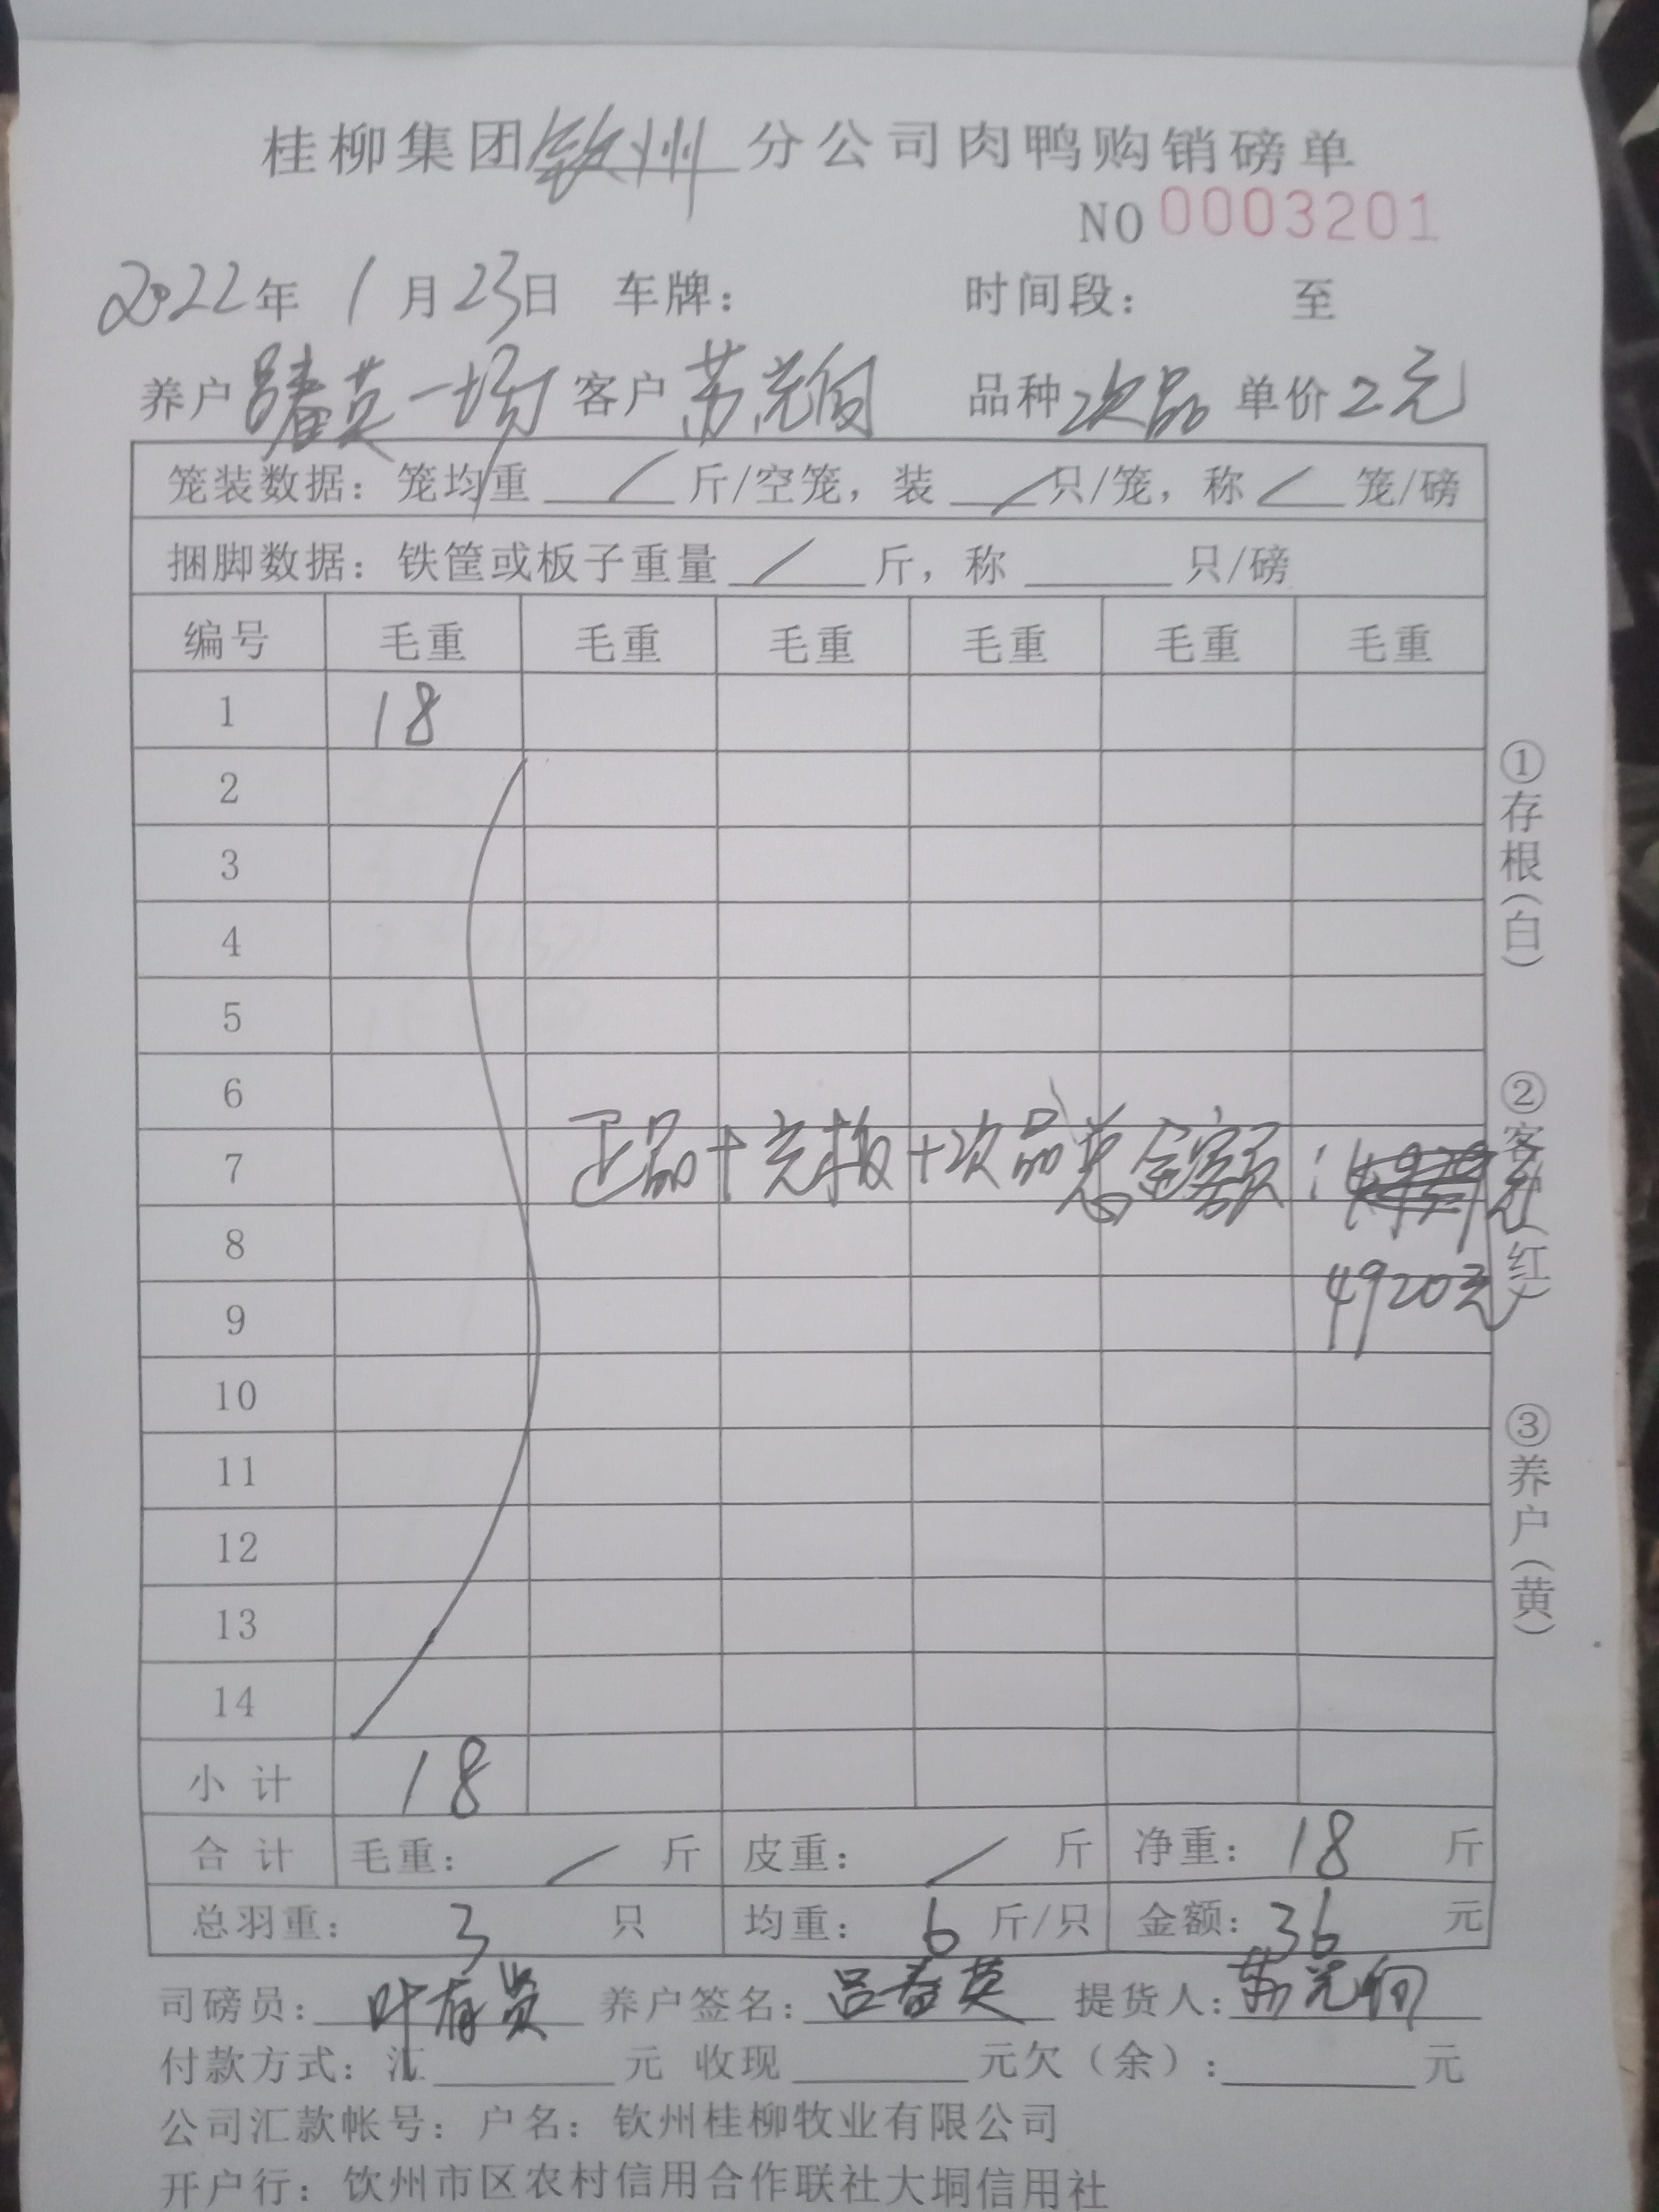 桂柳集团钦州分公司肉鸭购销磅单
NO 0003201
2022年 1月23日 车牌： 时间段： 至
养户 吕春英一场 客户 苏光向 品种 次品 单价 2元
笼装数据：笼均重 / 斤/空笼，装 / 只/笼，称 / 笼/磅
捆脚数据：铁筐或板子重量 / 斤，称 只/磅
编号 毛重 毛重 毛重 毛重 毛重 毛重
1 18
2
3
4
5
6
7 正品+光板+次品总金额：
8
9 4920元
10
11
12
13
14
小计 18
合计 毛重： / 斤 皮重： / 斤 净重： 18 斤
总羽重： 3 只 均重： 6 斤/只 金额： 36 元
司磅员： 叶有贤 养户签名： 吕春英 提货人： 苏光向
付款方式：汇 元 收现 元欠（余）： 元
公司汇款帐号：户名：钦州桂柳牧业有限公司
开户行：钦州市区农村信用合作联社大垌信用社
①存根（白）
②客（红）
③养户（黄）